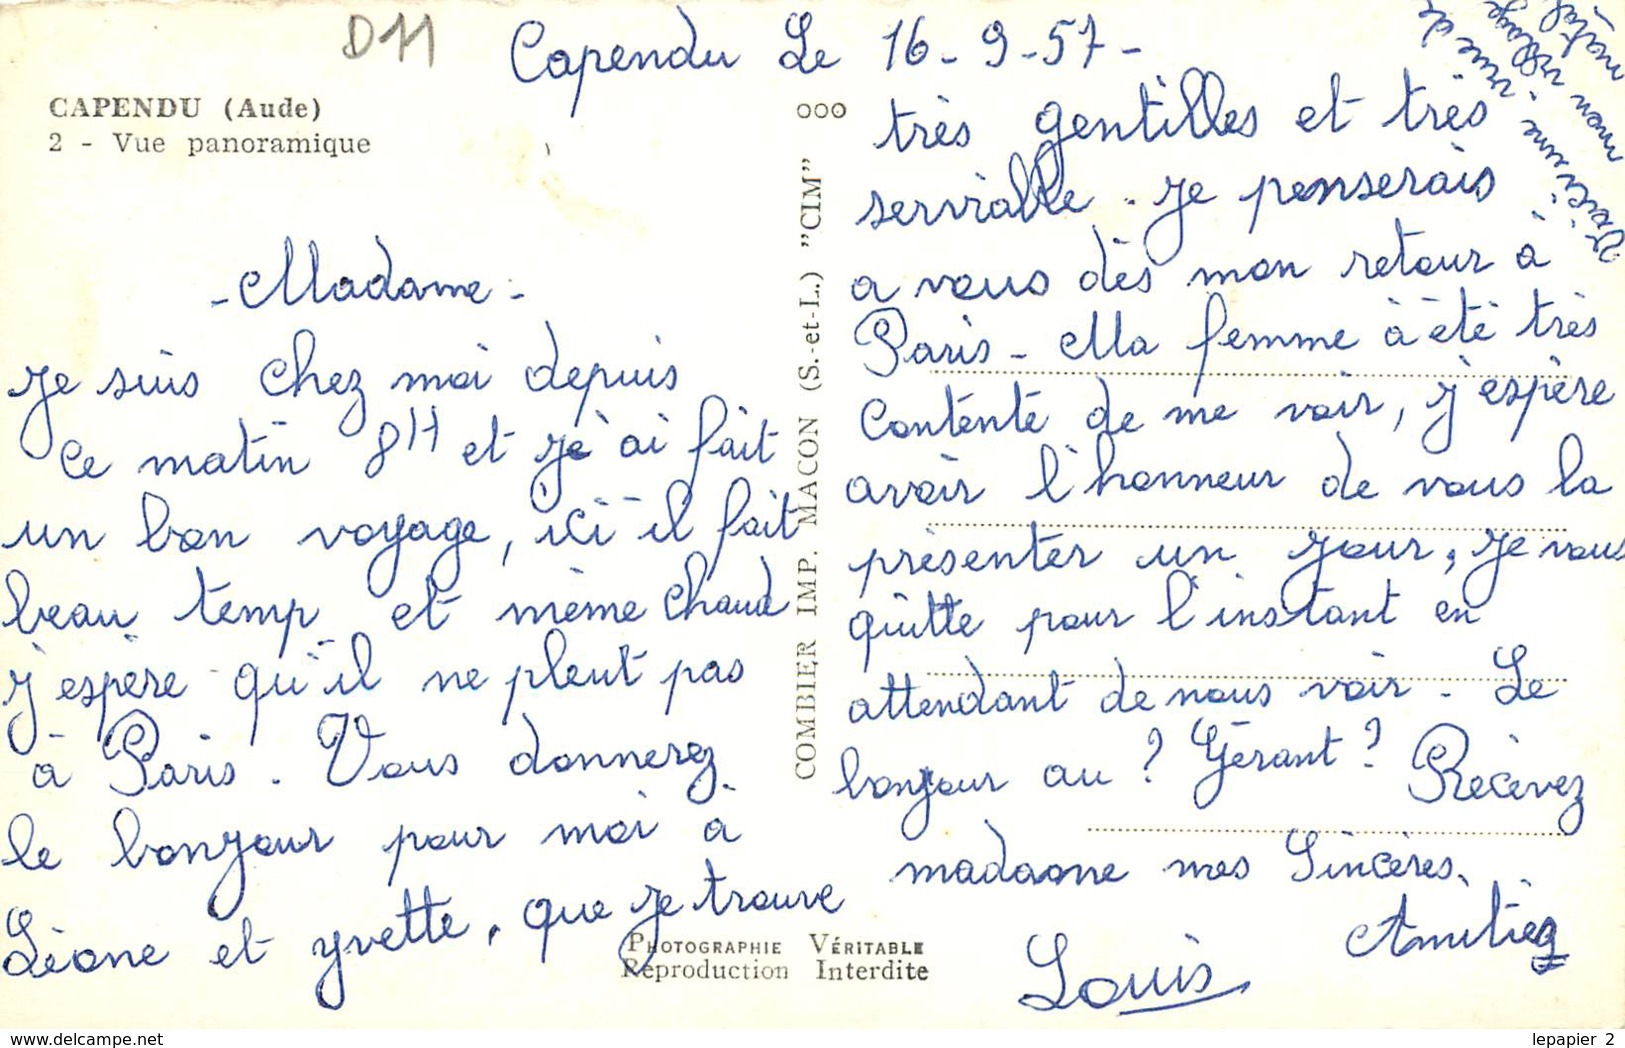 D11
Capendu Le 16-9-57-
CAPENDU (Aude)
2 - Vue panoramique
- Madame -
Je suis chez moi depuis
ce matin 8H et je ai fait
un bon voyage, ici il fait
beau temp et même chaud
j'espère qu'il ne pleut pas
à Paris. Vous donnerez
le bonjour pour moi à
Léone et yvette, que je trouve
COMBIER IMP. MACON (S.-et-L.) "CIM"
ooo
très gentilles et très
serviable. Je penserais
a vous dès mon retour à
Paris - Ma femme à été très
contente de me voir, j'espère
avoir l'honneur de vous la
présenter un jour, je vous
quitte pour l'instant en
attendant de nous voir. Le
bonjour au ? Gérant ? Recevez
madame mes Sincères
Amitiés
Louis
Voici une vue de
mon village
natal
PHOTOGRAPHIE VÉRITABLE
Reproduction Interdite
www.delcampe.net
lepapier_2